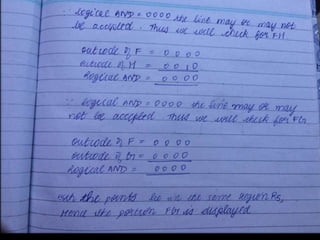 ∵ logical AND = 0000 the line may or may not
be accepted. Thus we will check for FH
outcode of F = 0 0 0 0
outcode of H = 0 0 1 0
logical AND = 0 0 0 0
∵ logical AND = 0000 the line may or may
not be accepted Thus we will check for FG
outcode of F = 0 0 0 0
outcode of G = 0 0 0 0
logical AND = 0000
the points lie the same region R5,
Hence the portion FG is displayed